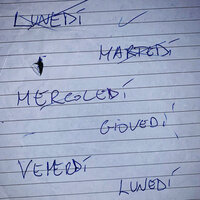 LUNEDÍ
MARTEDÍ
MERCOLEDÍ
GIOVEDÍ
VENERDÍ
LUNEDÍ